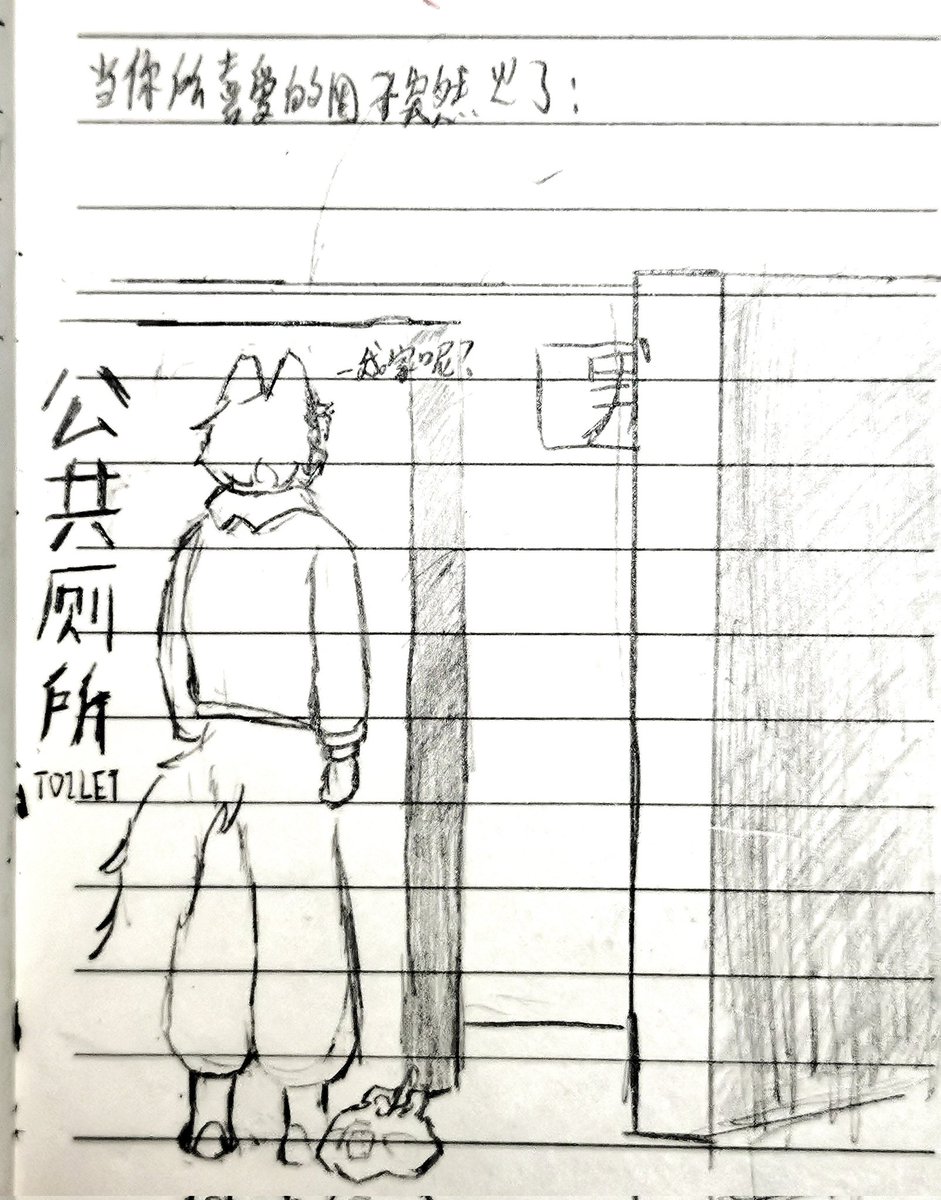 当你所喜爱的圈子突然火了：
我家呢？
男
公共厕所
TOILET